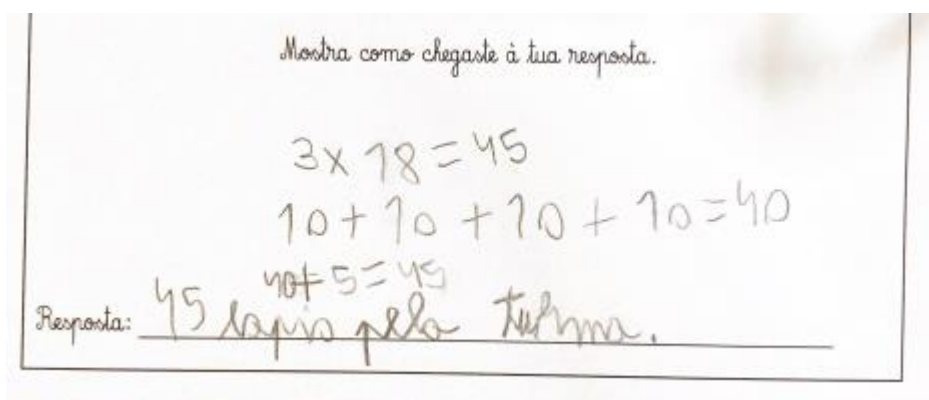 Mostra como chegaste à tua resposta.
3 x 18 = 45
10 + 10 + 10 + 10 = 40
40 + 5 = 45
Resposta: 45 lapis pela turma.